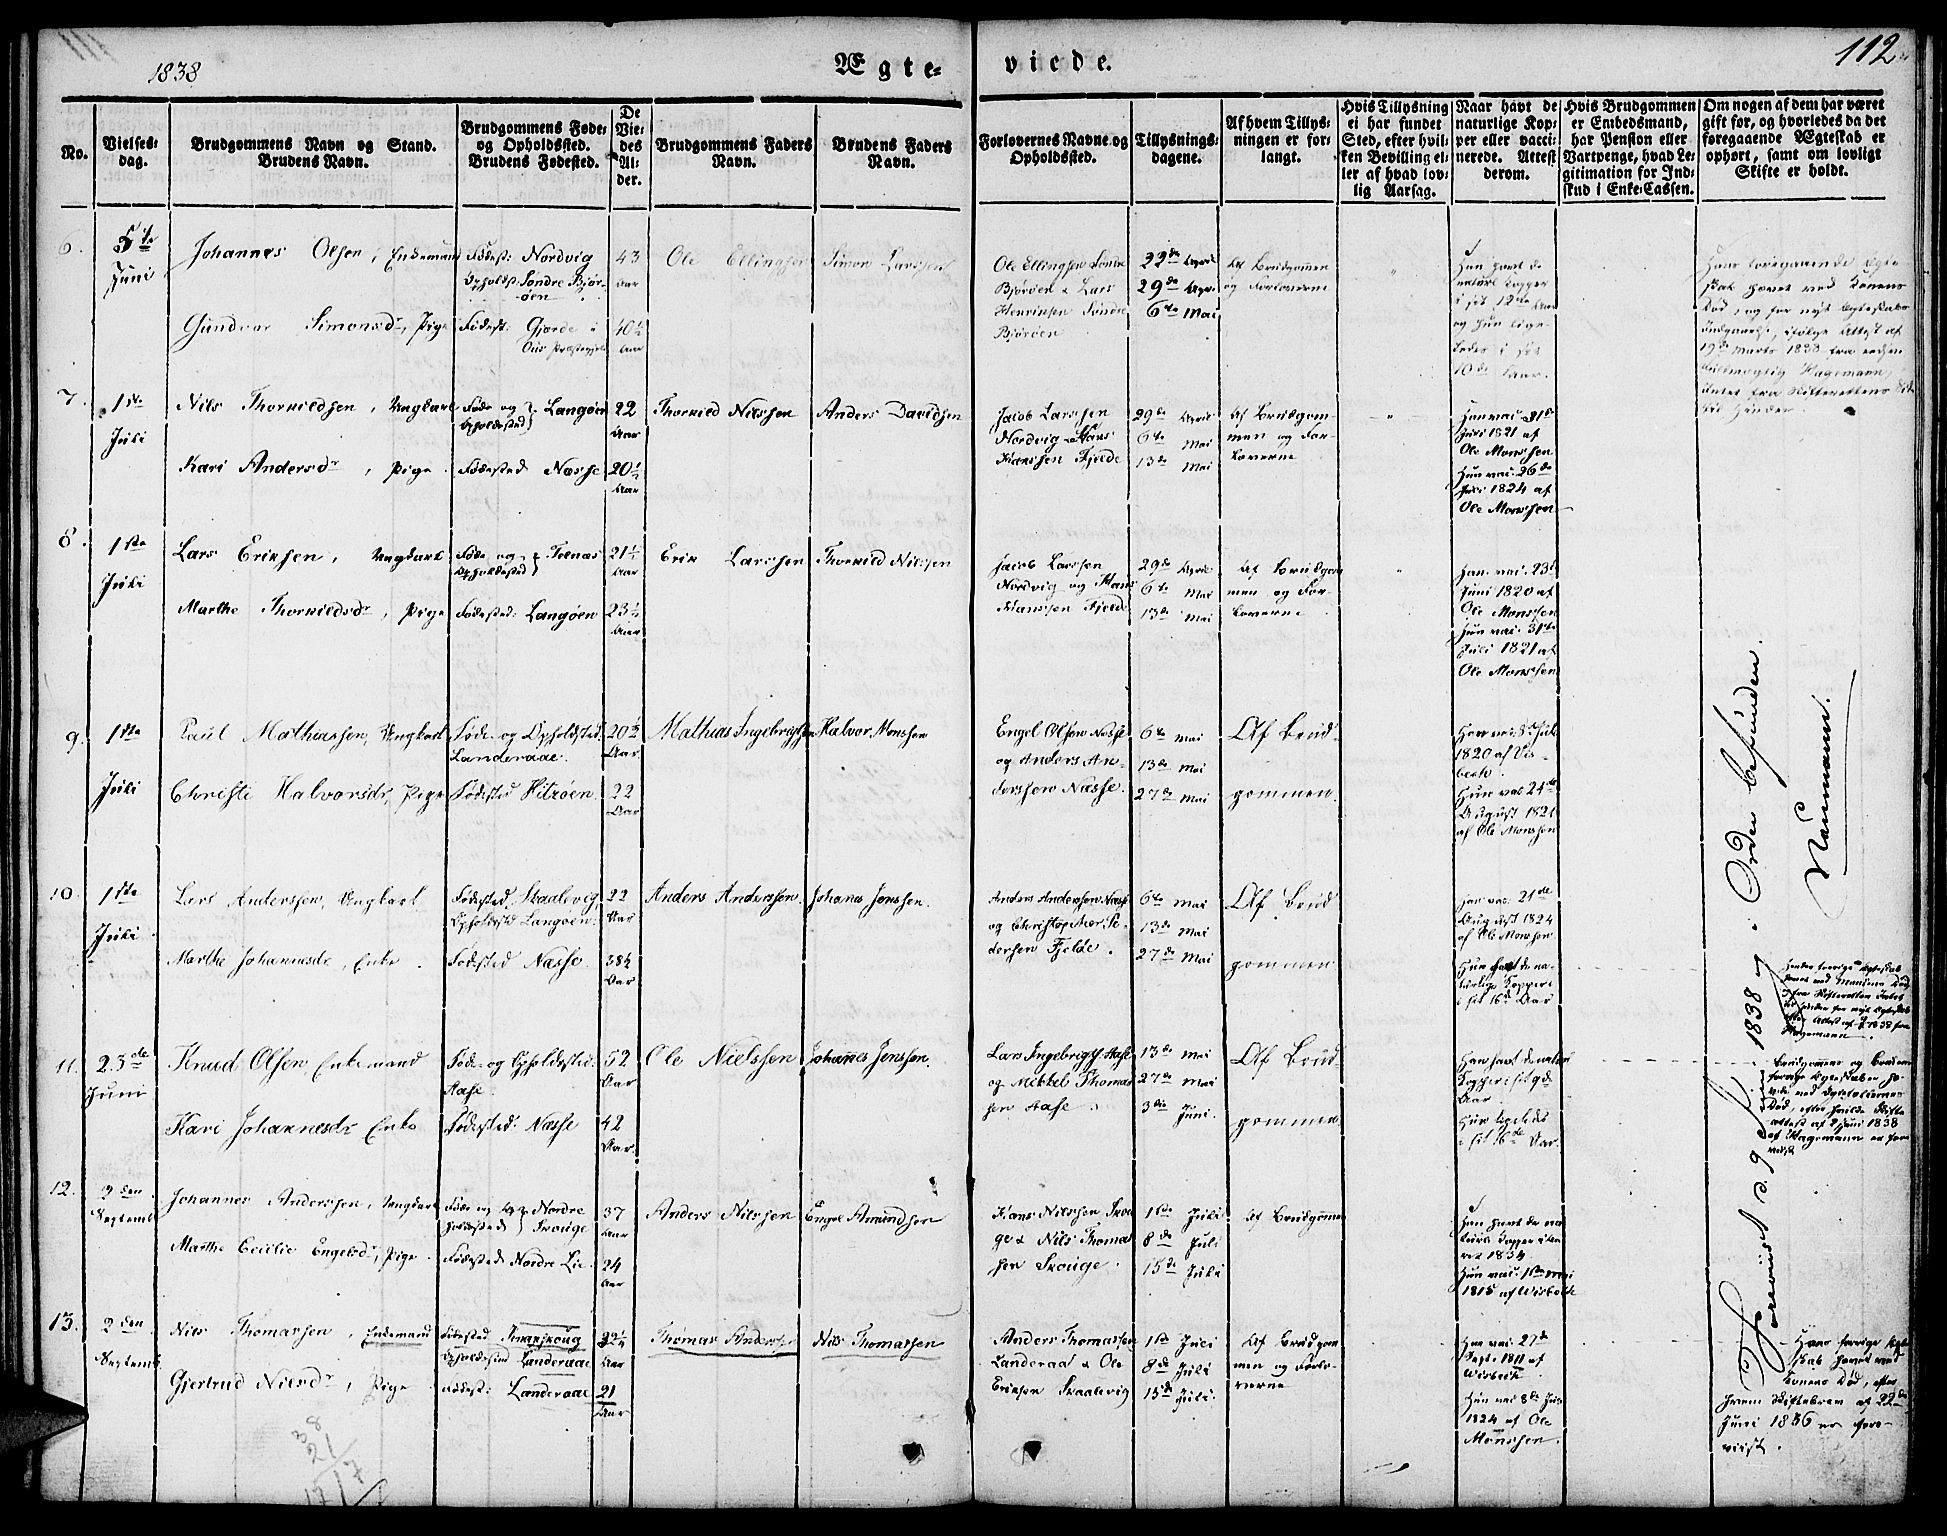 1838
Ægte-
viede.
112
No.
Vielses-
dag.
Brudgommens Navn og Stand.
Brudens Navn.
Brudgommens Føde-
og Opholdssted.
Brudens Fødested.
De
Vie-
des
Al-
der.
Brudgommens Faders
Navn.
Brudens Faders
Navn.
Forlovernes Navne og
Opholdssted.
Tillysnings-
dagene.
Af hvem Tillys-
ningen er for-
langt.
Hvis Tillysning
ei har fundet
Sted, efter hvil-
ken Bevilling el-
ler af hvad lov-
lig Aarsag.
Naar havt de
naturlige Kop-
per eller vacci-
nerede. Attest
derom.
Hvis Brudgommen
er Embedsmand,
har Pension eller
Vartpenge, hvad Le-
gitimation for Ind-
skud i Enke-Cassen.
Om nogen af dem har været
gift før, og hvorledes da det
foregaaende Ægteskab er
ophørt, samt om lovligt
Skifte er holdt.
6.
5te
Juni
Johannes Olsen, Enkemand
Gundvor Simonsdr, Pige
Fødest: Nordvig
Opholdst. Søndre Bjør-
øen
Fødest. Gjerde i
Ous Præstegjeld
43
Aar
40½
Aar
Ole Ellingsen
Simon Larssen
Ole Ellingsen Søndre
Bjørøen & Lars
Henriksen Søndre
Bjørøen
22de April
29de April
6te Mai
Af Brudgommen
og Forloverne
Han havt de
naturl. Kopper
i sit 12te Aar
og hun lige-
ledes i sit
10de Aar.
Hans foregaaende Ægte-
skab hævet ved Konens
Død, og for nyt Ægteskabs
Indgaaelse, ifølge Attest af
19de Marts 1838 fra
Hagemann,
intet fra Skifterettens Side
til Hinder.
7.
1ste
Juli
Nils Thorkildsen, Ungkarl
Kari Andersdr, Pige
Føde og
Opholdssted } Langøen
Fødested Næsse
22
Aar
20½
Aar
Thorkild Nilssen
Anders Davidsen
Jacob Larssen
Nordvig & Hans
Hanssen Fjelde
29de April
6te Mai
13de Mai
Af Brudgom-
men og For-
loverne
Han vac. 31te
Juli 1821 af
Ole Monssen
Hun vac. 26de
Juli 1824 af
Ole Monssen
8.
1ste
Juli
Lars Eriksen, Ungkarl
Marthe Thorkildsdr, Pige
Føde og
Opholdssted } Teenæs
Fødested: Langøen
21½
Aar
23½
Aar
Erik Larssen
Thorkild Nilssen
Jacob Larssen
Nordvig og Hans
Hanssen Fjelde
29de April
6te Mai
13de Mai
Af Brudgom
men og For-
loverne
Han vac. 23de
Juni 1820 af
Ole Monssen
Hun vac. 31te
Juli 1821 af
Ole Monssen
9.
1ste
Juli
Paul Mathiassen, Ungkarl
Christi Halvorsdr, Pige
Føde- og Opholdsted
Landeraae.
Fødested Hitzøen.
20½
Aar
22
Aar
Mathias Ingebrigtsen
Halvor Monssen
Engel Olsen Næsse
og Anders An-
derssen Næsse.
6te Mai
13de Mai
27de Mai
Af Brud-
gommen.
Han vac. 5 Juli
1820 af Vis-
bech.
Hun vac. 24de
August 1821
af Ole Monssen
10.
1ste
Juli
Lars Anderssen, Ungkarl
Marthe Johannesdr, Enke.
Fødested Skaalevig,
Opholdssted Langøen.
Fødested Næsse.
22
Aar
38½
Aar
Anders Anderssen.
Johanes Jonssen.
Anders Anderssen Næsse
og Christopher Pe-
dersen Fjelde.
6te Mai
13de Mai
27de Mai
Af Brud
gommen
Han vac. 21de
August 1824
af Ole Monssen
Hun havt de na-
turlige Kopper
i sit 16de Aar
Hendes forrige Ægteskab
hævet ved Mandens Død
fra Skifteretten Intet
til Hinder for nyt Ægteskab
11.
23de
Juni
Knud Olsen Enkemand
Kari Johannesdr Enke
Føde- og Opholdssted:
Aase.
Fødested: Næsse
52
Aar
42
Aar.
Ole Nielssen
Johanes Jonssen.
Lars Ingebrigts. Aase
og Mikkel Thomas
sen Aase.
13de Mai
27de Mai
3die Juni.
Af Brud-
gommen
Han havt de naturl
Kopper i sit 9de
Aar.
Hun ligeledes
i sit 16de Aar.
Brudgommen og Brudens
forrige Ægteskaber hæ-
vede ved Ægtefællernes
Død, efter hvilket Skifte
attest af 2 Juni 1838
af Hagemann er fore-
viist
12.
2den
Septemb.
Johannes Anderssen, Ungkarl
Marthe Cecilie Engelsdr, Pige.
Føde og Op-
holdssted } Nordre
Skouge.
Fødested Nordre Lie.
37
Aar
24
Aar
Anders Nilssen
Engel Amundsen
Hans Nilssen Skou
ge & Nils Thomas
sen Skouge.
1ste Juli
8de Juli
15de Juli
Af Brudgommen
Han havt de na-
turl. Kopper i Aa-
ret 1834.
Hun vac. 1ste Mai
1815 af Wisbech
13.
2den
Septemb.
Nils Thomassen, Enkemand
Gjertrud Nilsdr, Pige.
Fødested Knarskoug
Opholdssted Landeraae
Fødest: Landeraae
32¼
Aar
21
Aar
Thomas Anderss.
Nils Thomassen
Anders Thomassen
Landeraa & Ole
Eriksen Skaalevig
1ste Juli
8de Juli
15de Juli.
Af Brudgom-
men og Forlo-
verne
Han vac. 27de
Sept. 1811 af
Wisbech
Hun vac. 8de Juni
1824 af Ole
Monssen.
Hans forrige Ægte-
skab hævet ved
Konens Død, efter
hvem Skiftebrev af 22de
Juni 1836 er fore-
viist.
Foreviist d. 9 Juni 1838 og Orden befunden
Neumann.
38
21
17/17